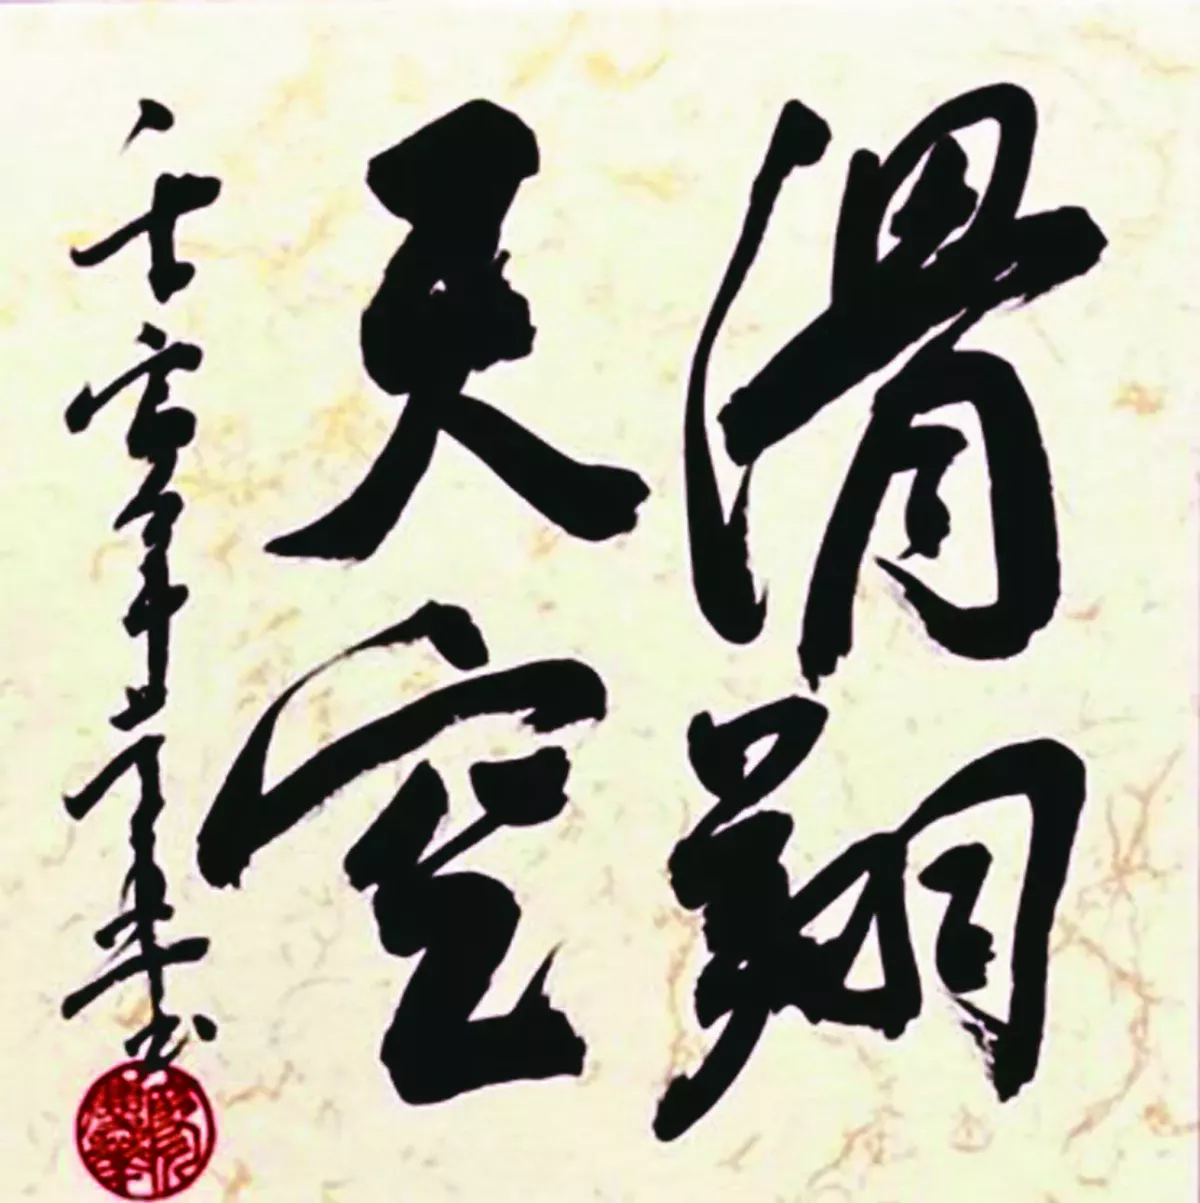 滑翔
天空
壬寅年
书